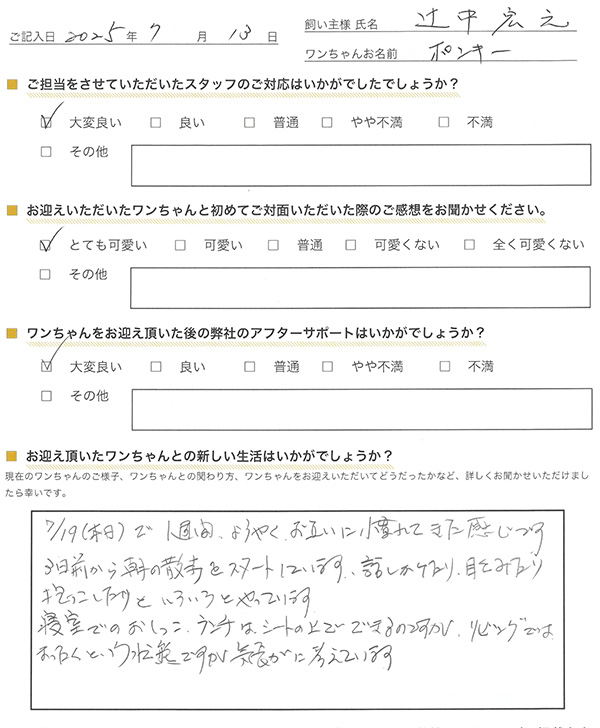 ご記入日 2025 年 7 月 13 日
飼い主様 氏名 辻中宏之
ワンちゃんお名前 ポンキー
■ ご担当をさせていただいたスタッフのご対応はいかがでしたでしょうか？
☑ 大変良い □ 良い □ 普通 □ やや不満 □ 不満
□ その他
■ お迎えいただいたワンちゃんと初めてご対面いただいた際のご感想をお聞かせください。
☑ とても可愛い □ 可愛い □ 普通 □ 可愛くない □ 全く可愛くない
□ その他
■ ワンちゃんをお迎え頂いた後の弊社のアフターサポートはいかがでしょうか？
☑ 大変良い □ 良い □ 普通 □ やや不満 □ 不満
□ その他
■ お迎え頂いたワンちゃんとの新しい生活はいかがでしょうか？
現在のワンちゃんのご様子、ワンちゃんとの関わり方、ワンちゃんをお迎えいただいてどうだったかなど、詳しくお聞かせいただけまし
たら幸いです。
7/19(本日)で1週間、ようやくお互いに慣れてきた感じです
3日前から朝の散歩をスタートしています、話しかけたり、目をみたり
抱っこしたりといろいろとやっています
寝室でのおしっこ、ランチは、シートの上でできるのですが、リビングでは
まったくという状態ですが気長に考えています